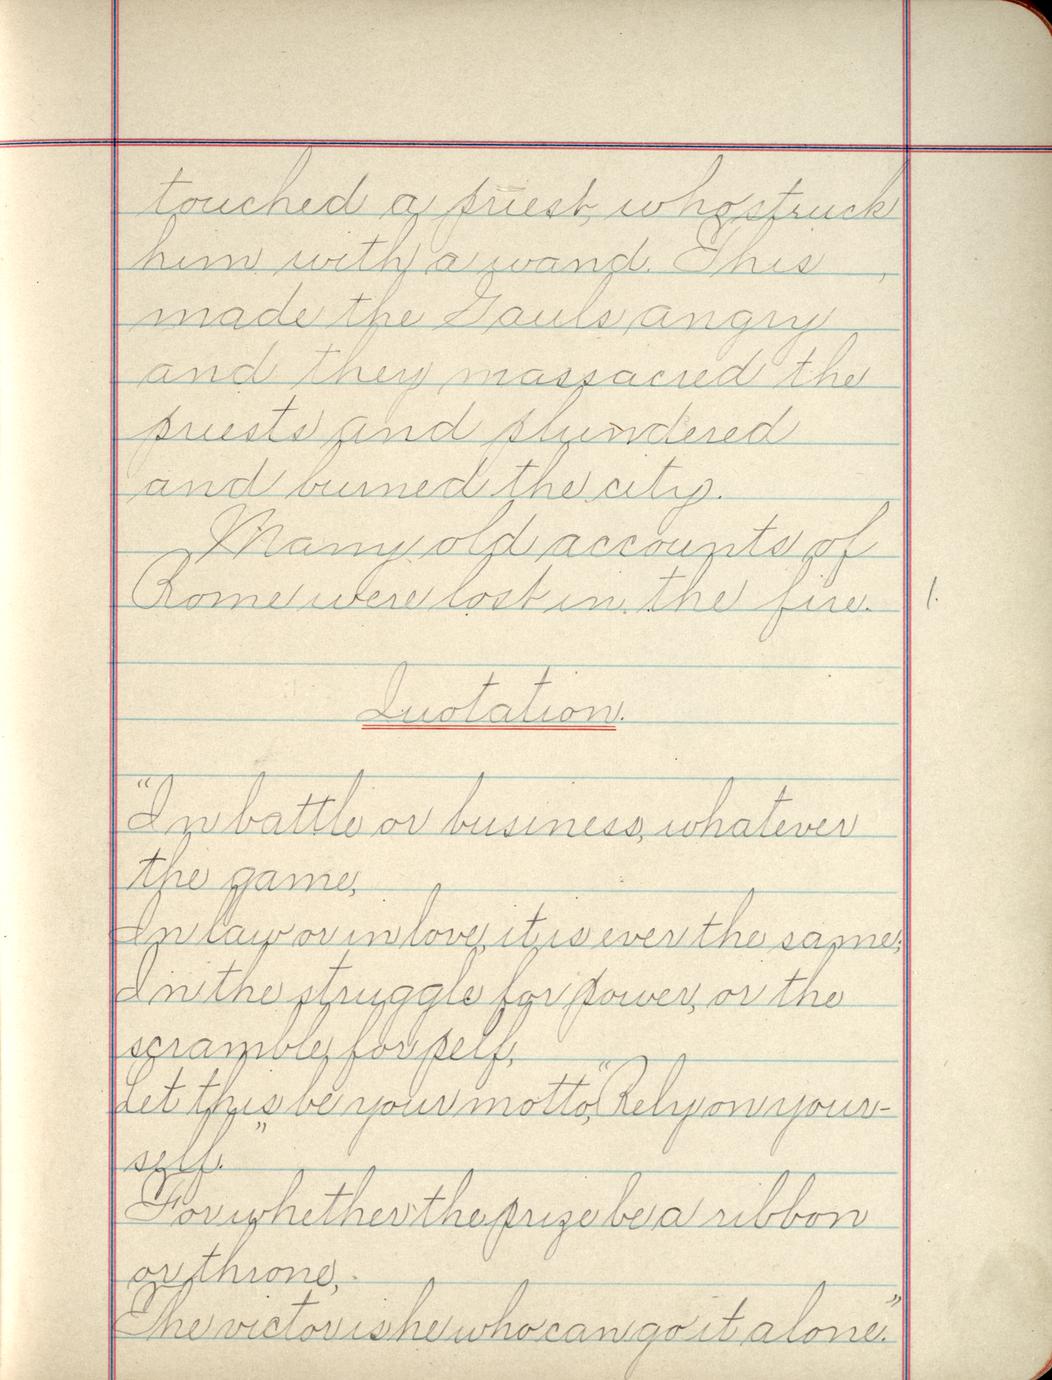 touched a priest, who struck
him with a wand. This
made the Gauls angry
and they massacred the
priests and plundered
and burned the city.
Many old accounts of
Rome were lost in the fire. 1.
Quotation.
"In battle or business, whatever
the game,
In law or in love, it is ever the same;
In the struggle for power, or the
scramble for pelf,
Let this be your motto, "Rely on your-
self."
For whether the prize be a ribbon
or throne,
The victor is he who can go it alone."